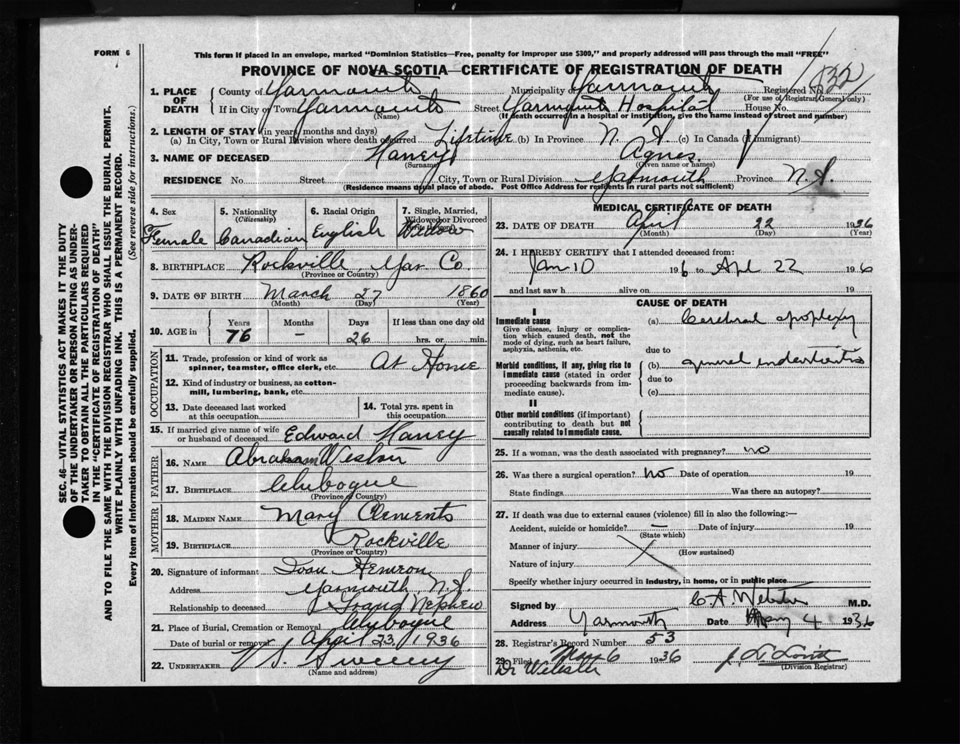 FORM 6
This form if placed in an envelope, marked "Dominion Statistics—Free, penalty for improper use $300," and properly addressed will pass through the mail "FREE"
PROVINCE OF NOVA SCOTIA—CERTIFICATE OF REGISTRATION OF DEATH
1. PLACE OF DEATH County of Yarmouth Municipality of Yarmouth Registered No. 1532
(For use of Registrar General only)
If in City or Town Yarmouth Street Yarmouth Hospital House No.
(Name) (If death occurred in a hospital or institution, give the name instead of street and number)
2. LENGTH OF STAY (in years, months and days)
(a) In City, Town or Rural Division where death occurred Lifetime (b) In Province N.S. (c) In Canada (if immigrant)
3. NAME OF DECEASED Haney Agnes
(Surname) (Given name or names)
RESIDENCE No. Street City, Town or Rural Division Yarmouth Province N.S.
(Residence means usual place of abode. Post Office Address for residents in rural parts not sufficient)
SEC. 46—VITAL STATISTICS ACT MAKES IT THE DUTY
OF THE UNDERTAKER OR PERSON ACTING AS UNDER-
TAKER TO OBTAIN ALL THE PARTICULARS REQUIRED
IN THE "CERTIFICATE OF REGISTRATION OF DEATH"
AND TO FILE THE SAME WITH THE DIVISION REGISTRAR WHO SHALL ISSUE THE BURIAL PERMIT.
WRITE PLAINLY WITH UNFADING INK. THIS IS A PERMANENT RECORD.
Every item of information should be carefully supplied. (See reverse side for instructions.)
4. Sex 5. Nationality (Citizenship) 6. Racial Origin 7. Single, Married, Widowed or Divorced
Female Canadian English Widow
8. BIRTHPLACE Rockville Yar. Co.
(Province or Country)
9. DATE OF BIRTH March 27 1860
(Month) (Day) (Year)
10. AGE in Years Months Days If less than one day old
76 - 26 hrs. or min.
OCCUPATION
11. Trade, profession or kind of work as spinner, teamster, office clerk, etc. At Home
12. Kind of industry or business, as cotton-mill, lumbering, bank, etc.
13. Date deceased last worked at this occupation
14. Total yrs. spent in this occupation
15. If married give name of wife or husband of deceased Edward Haney
FATHER
16. NAME Abraham Weston
17. BIRTHPLACE Chebogue
(Province or Country)
MOTHER
18. MAIDEN NAME Mary Clements
19. BIRTHPLACE Rockville
(Province or Country)
20. Signature of informant
Address Yarmouth N.S.
Relationship to deceased Grand Nephew
21. Place of Burial, Cremation or Removal Chebogue
Date of burial or removal April 23, 1936
22. UNDERTAKER V.S. Sweeny
(Name and address)
MEDICAL CERTIFICATE OF DEATH
23. DATE OF DEATH April 22 1936
(Month) (Day) (Year)
24. I HEREBY CERTIFY that I attended deceased from:
Jan 10 1936 to Apl 22 1936
and last saw h alive on 19
CAUSE OF DEATH
I
Immediate cause (a) Cerebral apoplexy
Give disease, injury or complica-
tion which caused death, not the
mode of dying, such as heart failure,
asphyxia, asthenia, etc. due to
Morbid conditions, if any, giving rise to (b) general endarteritis
immediate cause (stated in order due to
proceeding backwards from im-
mediate cause). (c)
II
Other morbid conditions (if important)
contributing to death but not
causally related to immediate cause.
25. If a woman, was the death associated with pregnancy? no
26. Was there a surgical operation? No Date of operation 19
State findings Was there an autopsy?
27. If death was due to external causes (violence) fill in also the following:—
Accident, suicide or homicide? — Date of injury 19
(State which)
Manner of injury
(How sustained)
Nature of injury
Specify whether injury occurred in industry, in home, or in public place
Signed by C A Webster M.D.
Address Yarmouth Date May 4 1936
28. Registrar's Record Number 53
29. Filed May 6 1936
(Division Registrar)
Dr Webster